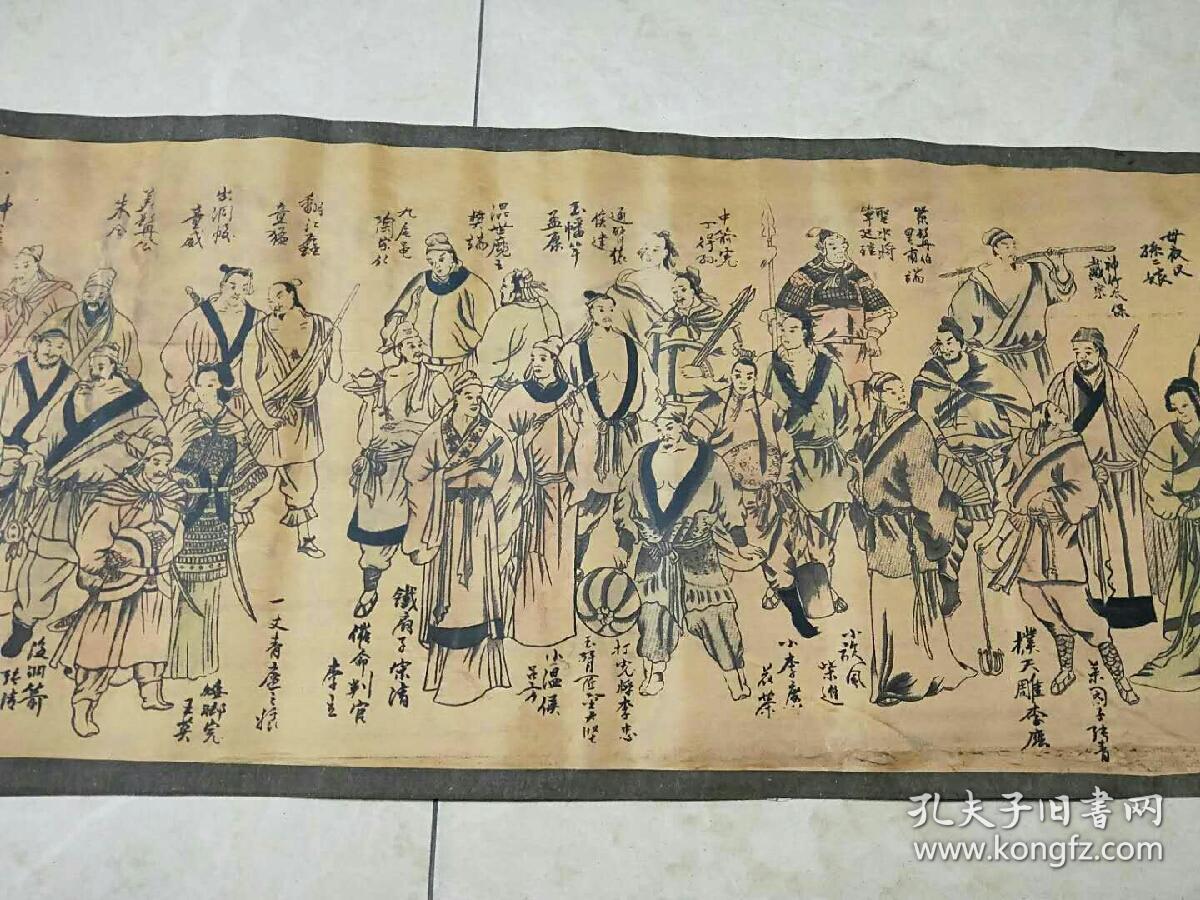 母夜叉
孫二娘
神行太保
戴宗
紫髯伯
皇甫端
聖水將
單廷珪
中箭虎
丁得孙
通臂猿
侯建
玉幡竿
孟康
混世魔王
樊瑞
九尾龟
陶宗旺
翻江蜃
童猛
出洞蛟
童威
美髯公
朱仝
菜园子張青
撲天雕李應
小旋風
柴進
小李廣
花榮
打虎將李忠
小温侯
吕方
鐵扇子宋清
催命判官
李立
一丈青扈三娘
矮脚虎
王英
没羽箭
張清
孔夫子旧书网
www.kongfz.com